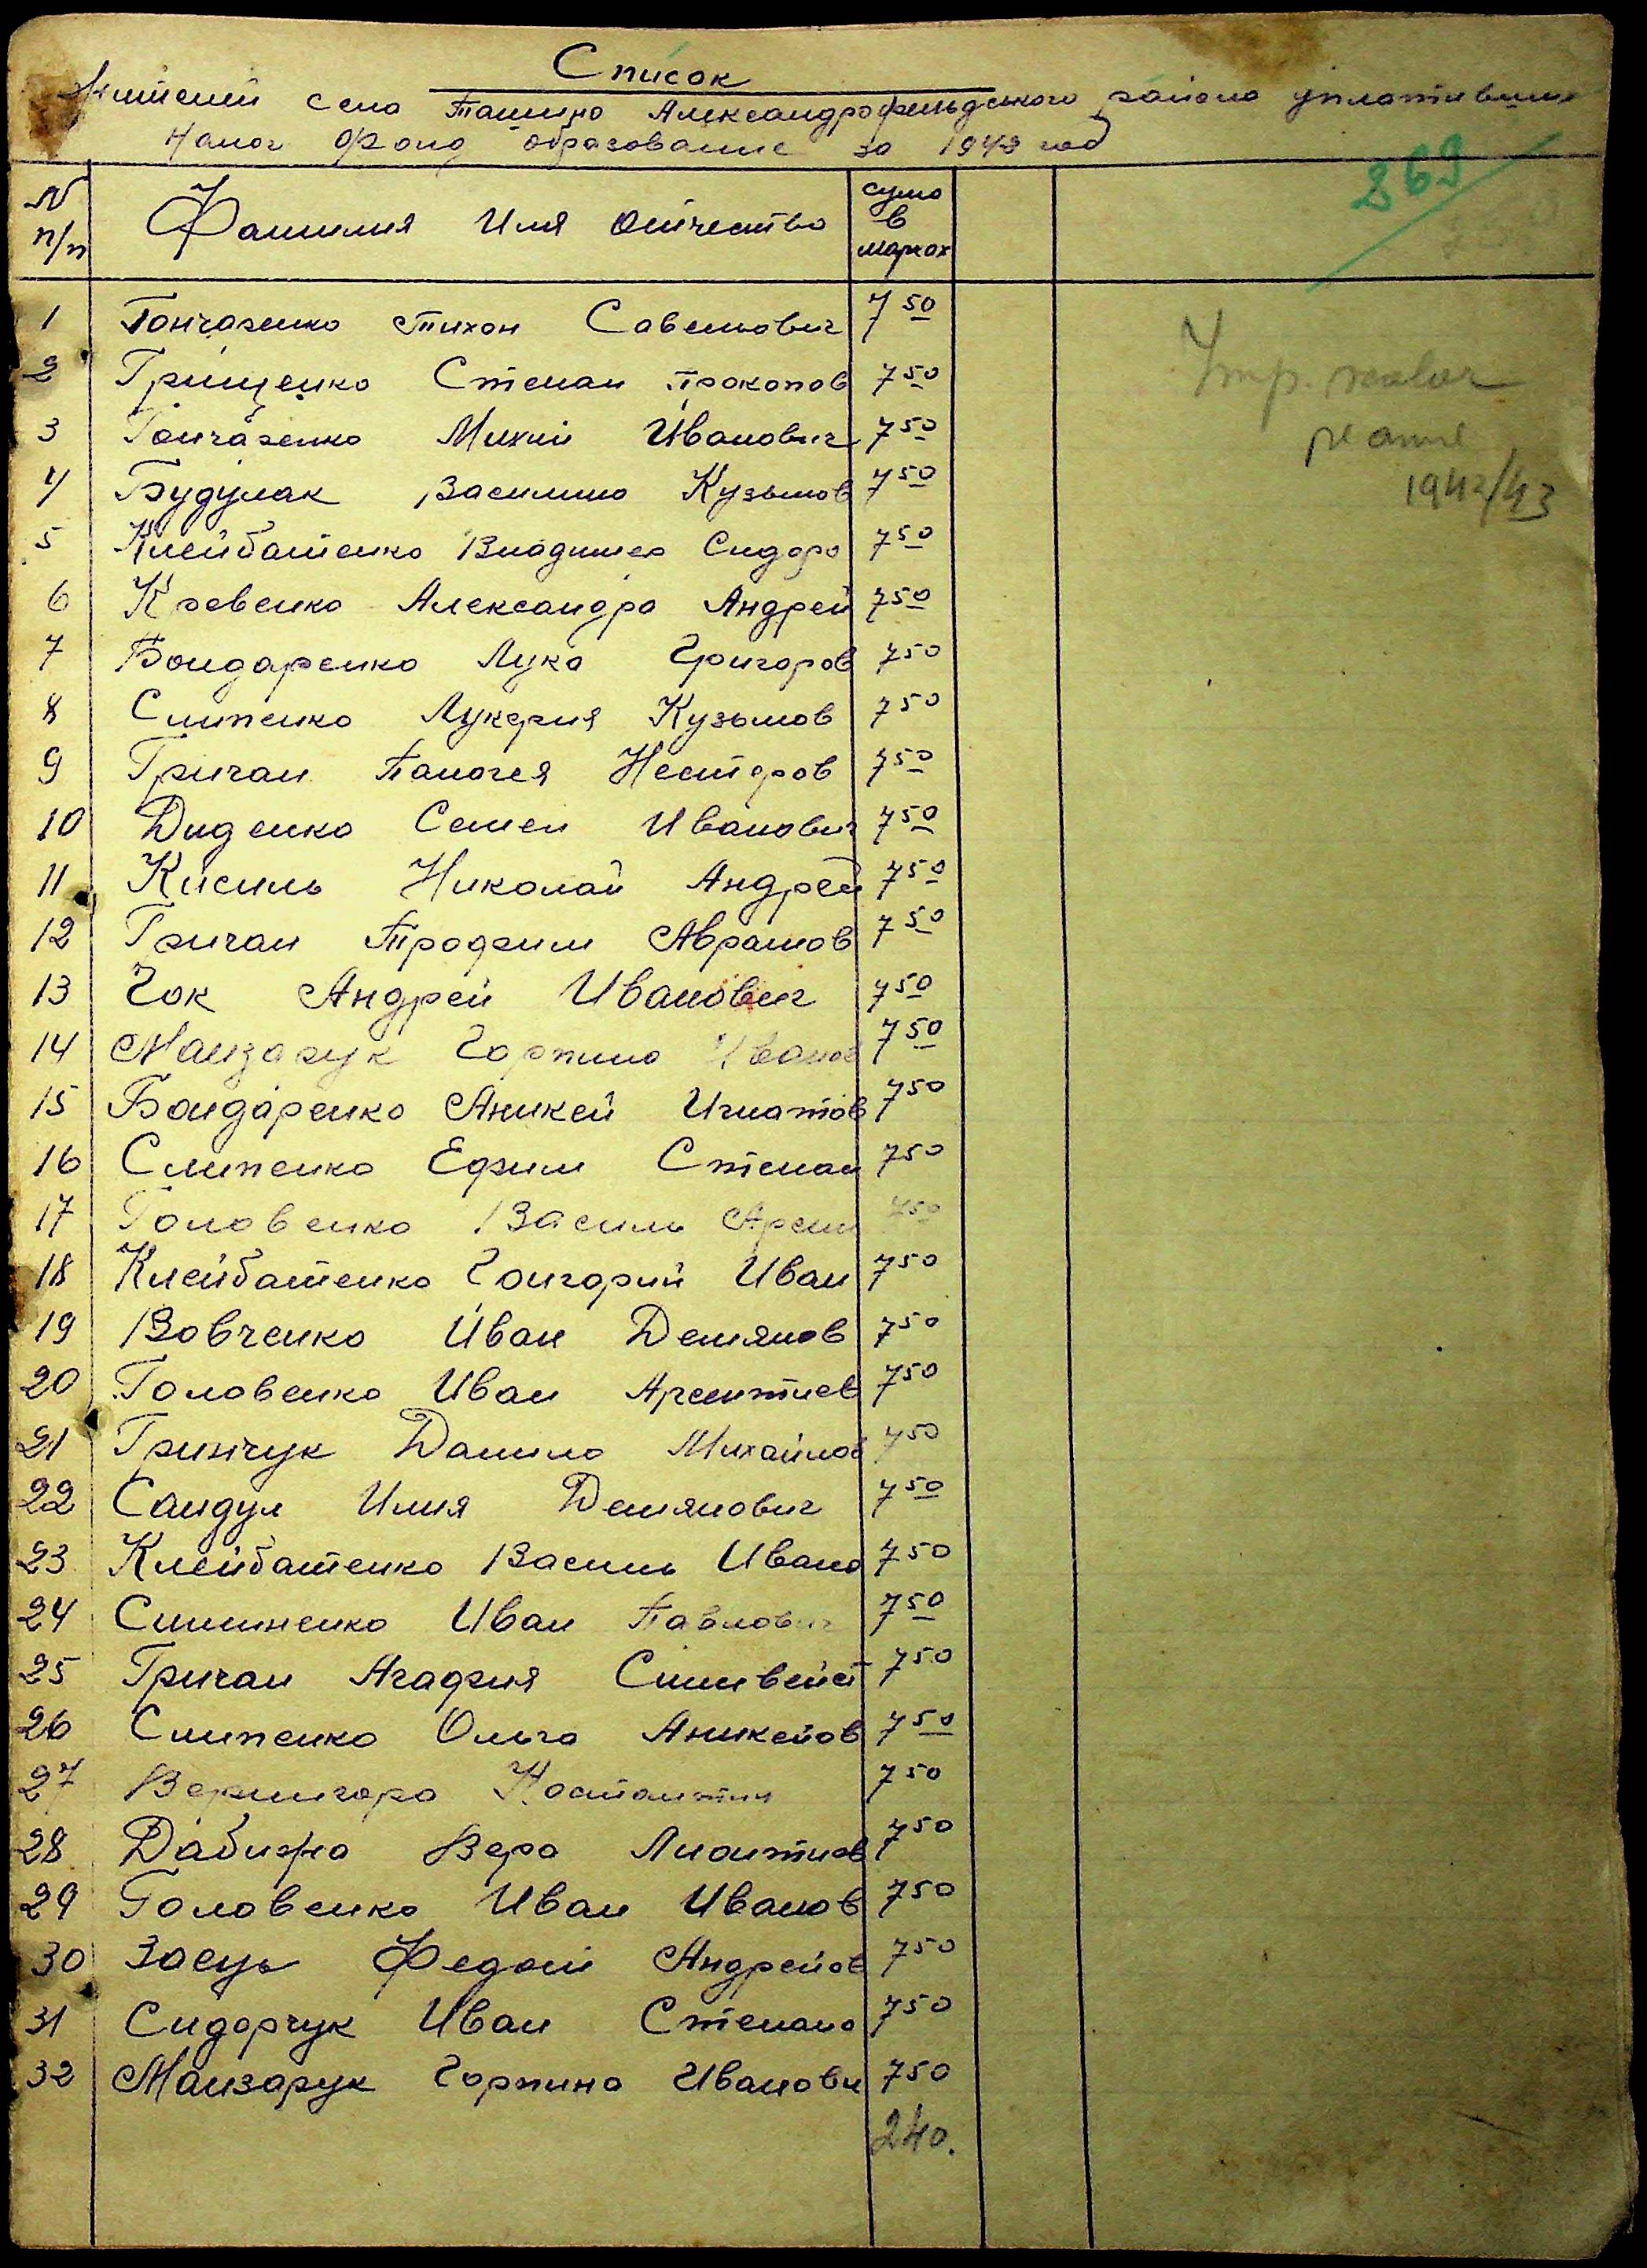 Список
жителей села Ташино Александрофельдського района уплативших
Налог Фонд образование за 1942 год
269
№ п/п Фамилия Имя Отчество сума в марках
1 Гончаренко Тихон Савельович 7 50
2 Грищенко Степан Прокопов 7 50
3 Гончаренко Михей Иванович 7 50
4 Будулак Василина Кузьмов 7 50
5 Клейбатенко Владимер Сидоро 7 50
6 Кревенко Александра Андрей 7 50
7 Бондаренко Лука Григоров 7 50
8 Слипенко Лукерия Кузьмов 7 50
9 Гричан Палогея Несторов 7 50
10 Диденко Семен Иванович 7 50
11 Кисиль Николай Андрей 7 50
12 Гричан Трофим Аврамов 7 50
13 Гок Андрей Иванович 7 50
14 Манзарук Горпина Иванов 7 50
15 Бондаренко Аникей Игнатов 7 50
16 Слипенко Ефим Степан 7 50
17 Головенко Василь Арсен 7 50
18 Клейбатенко Григорий Иван 7 50
19 Вовченко Иван Демянов 7 50
20 Головенко Иван Арсентиев 7 50
21 Гринчук Данило Михайлов 7 50
22 Сандул Илия Демянович 7 50
23 Клейбатенко Василь Ивано 7 50
24 Симиненко Иван Павлович 7 50
25 Гричан Агафия Силивейст 7 50
26 Слипенко Ольга Аникейов 7 50
27 Веригора Костантин 7 50
28 Дабижа Вера Лиантиев 7 50
29 Головенко Иван Иванов 7 50
30 Заець Федосй Андрейов 7 50
31 Сидорчук Иван Степано 7 50
32 Манзарук Горпина Ивановн 7 50
240.
Imp. scolar
pe anul
1942/43